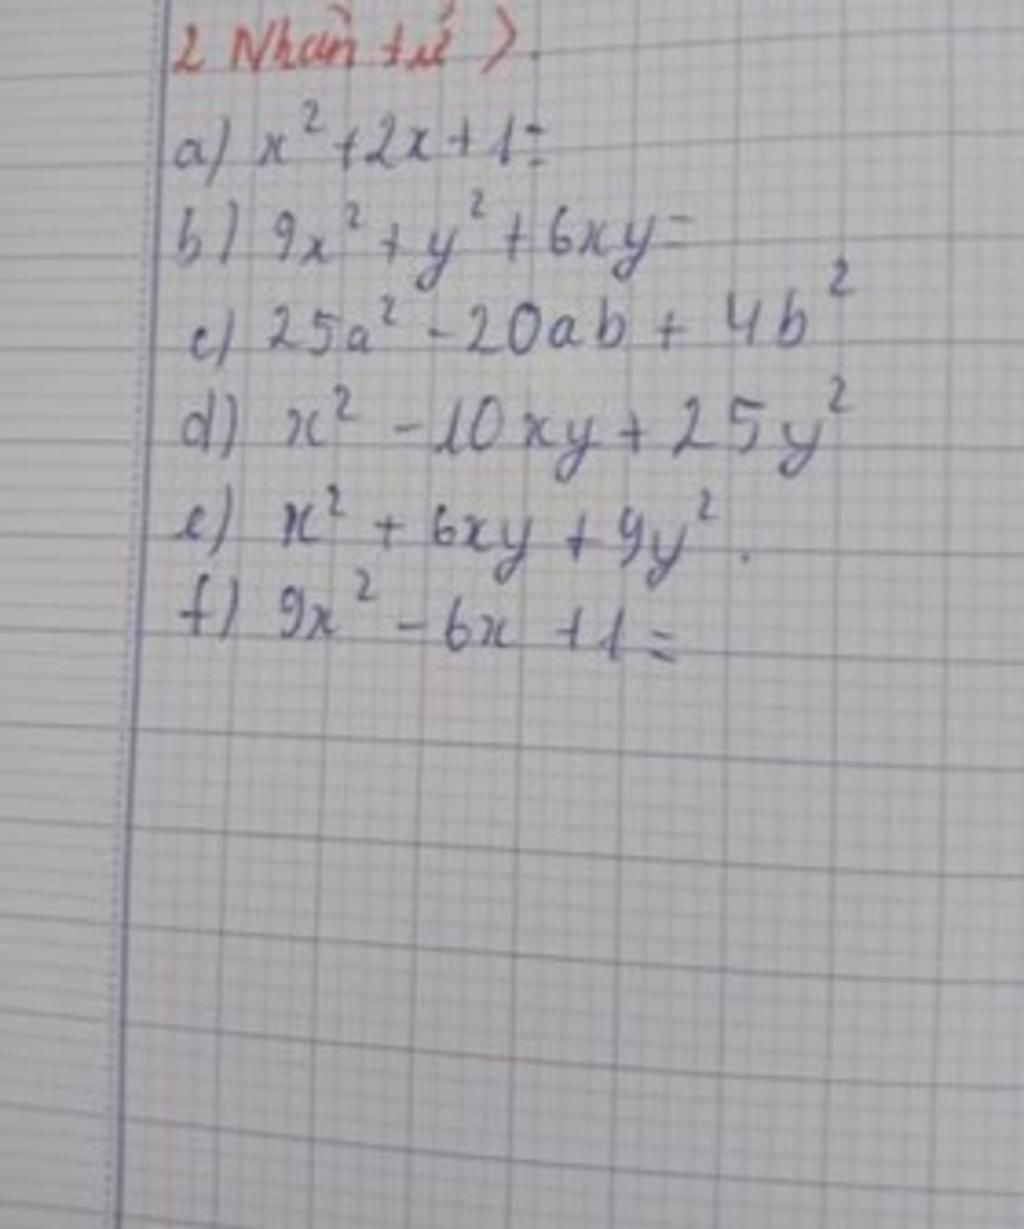 2 Nhân tử >.
a) x² + 2x + 1 =
b) 9x² + y² + 6xy =
c) 25a² - 20ab + 4b²
d) x² - 10xy + 25y²
e) x² + 6xy + 9y².
f) 9x² - 6x + 1 =